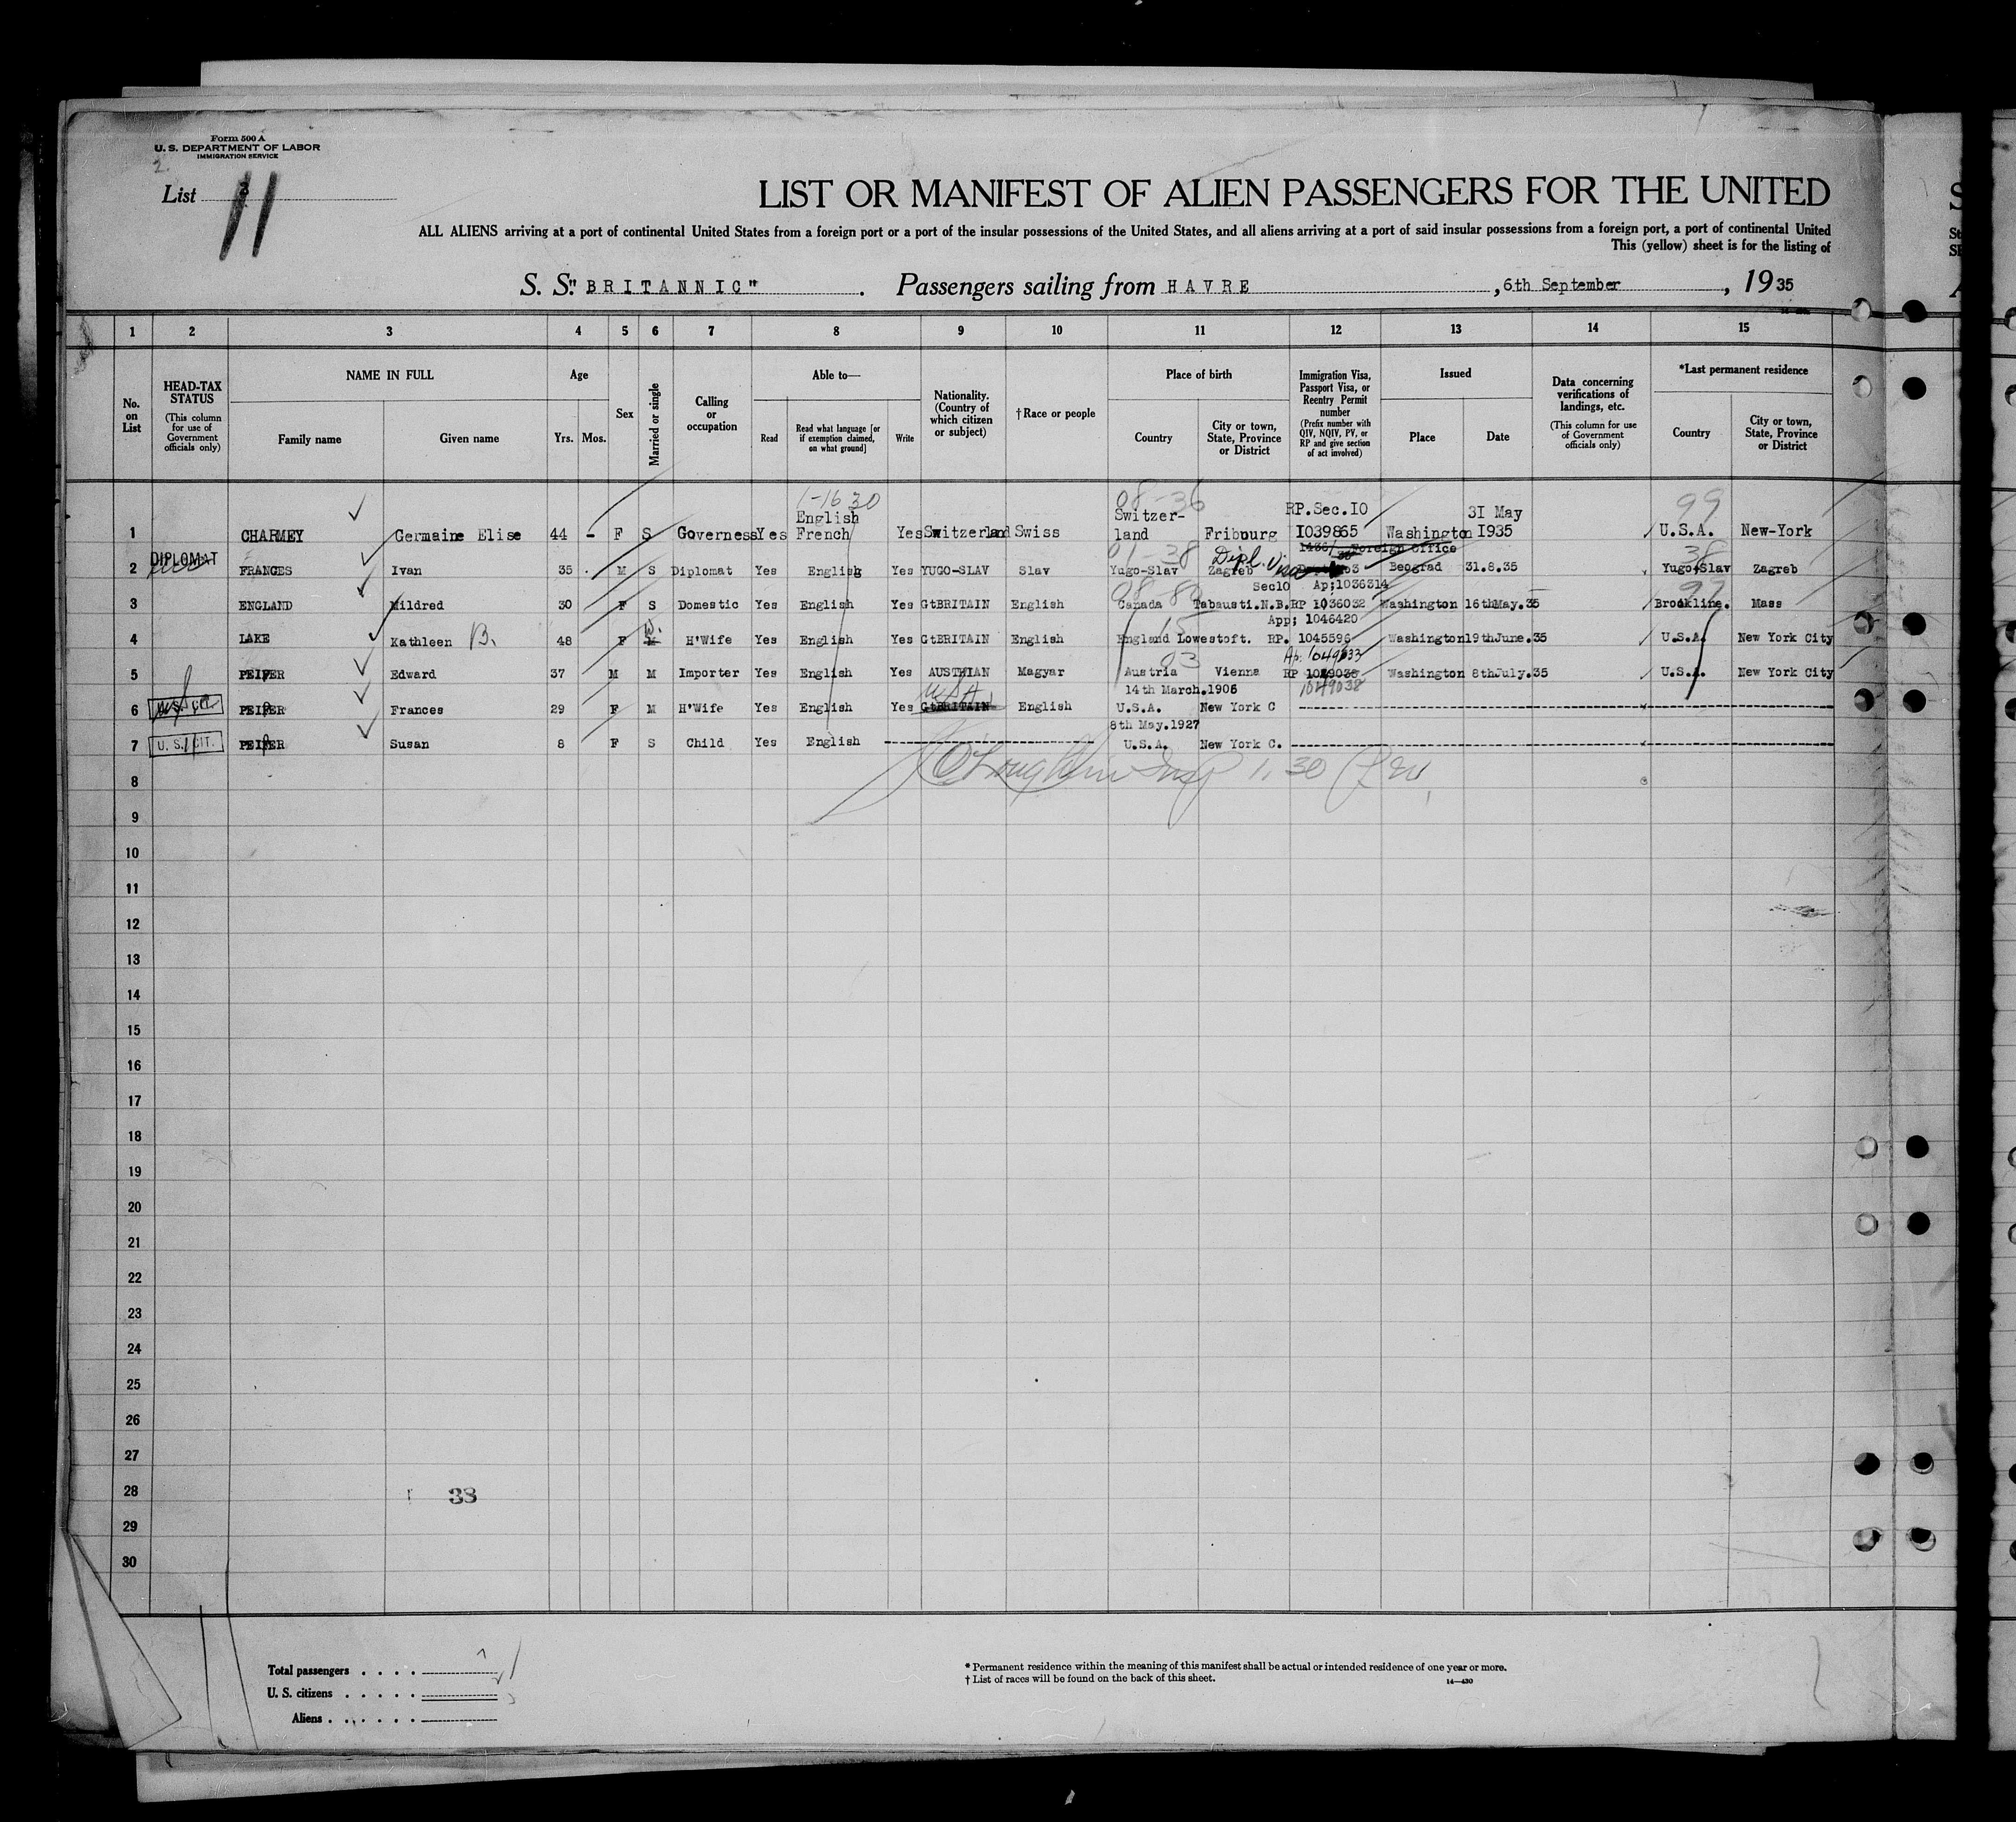 Form 500 A
U. S. DEPARTMENT OF LABOR
IMMIGRATION SERVICE
2
List 3
11
LIST OR MANIFEST OF ALIEN PASSENGERS FOR THE UNITED
ALL ALIENS arriving at a port of continental United States from a foreign port or a port of the insular possessions of the United States, and all aliens arriving at a port of said insular possessions from a foreign port, a port of continental United
This (yellow) sheet is for the listing of
S. S. "BRITANNIC". Passengers sailing from HAVRE, 6th September, 1935
1 2 3 4 5 6 7 8 9 10 11 12 13 14 15
No. on List
HEAD-TAX STATUS (This column for use of Government officials only)
NAME IN FULL
Family name Given name
Age
Yrs. Mos.
Sex
Married or single
Calling or occupation
Able to—
Read Read what language [or if exemption claimed, on what ground] Write
Nationality. (Country of which citizen or subject)
† Race or people
Place of birth
Country City or town, State, Province or District
Immigration Visa, Passport Visa, or Reentry Permit number (Prefix number with QIV, NQIV, PV, or RP and give section of act involved)
Issued
Place Date
Data concerning verifications of landings, etc. (This column for use of Government officials only)
*Last permanent residence
Country City or town, State, Province or District
1-16 30 08-36 99
1 CHARMEY Germaine Elise 44 - F S Governess Yes English French Yes Switzerland Swiss Switzer-land Fribourg RP.Sec.IO I039865 Washington 3I May I935 U.S.A. New-York
Foreign Office
01-38 Dipl. Visa 38
2 DIPLOMAT FRANGES Ivan 35 M S Diplomat Yes English Yes YUGO-SLAV Slav Yugo-Slav Zagreb Beograd 31.8.35 Yugo Slav Zagreb
Sec10 Ap;1036314
3 ENGLAND Mildred 30 F S Domestic Yes English Yes GtBRITAIN English Canada Tabausti.N.B. RP 1036032 Washington 16thMay.35 Brookline. Mass
App; 1046420
4 LAKE Kathleen B. 48 F M W. H'Wife Yes English Yes GtBRITAIN English England Lowestoft. RP. 1045596 Washington 19thJune.35 U.S.A. New York City
Ap. 1049033
5 PEIFER Edward 37 M M Importer Yes English Yes AUSTRIAN Magyar Austria Vienna RP 1049038 Washington 8thJuly.35 U.S.A. New York City
14th March.1906 1049038
6 PEIFER Frances 29 F M H'Wife Yes English Yes GtBRITAIN USA English U.S.A. New York C
8th May.1927
7 U. S. CIT. PEIFER Susan 8 F S Child Yes English U.S.A. New York C.
O'Loughlin Insp 1.30
8
9
10
11
12
13
14
15
16
17
18
19
20
21
22
23
24
25
26
27
28
38
29
30
Total passengers
U. S. citizens
Aliens
* Permanent residence within the meaning of this manifest shall be actual or intended residence of one year or more.
† List of races will be found on the back of this sheet.
14—430